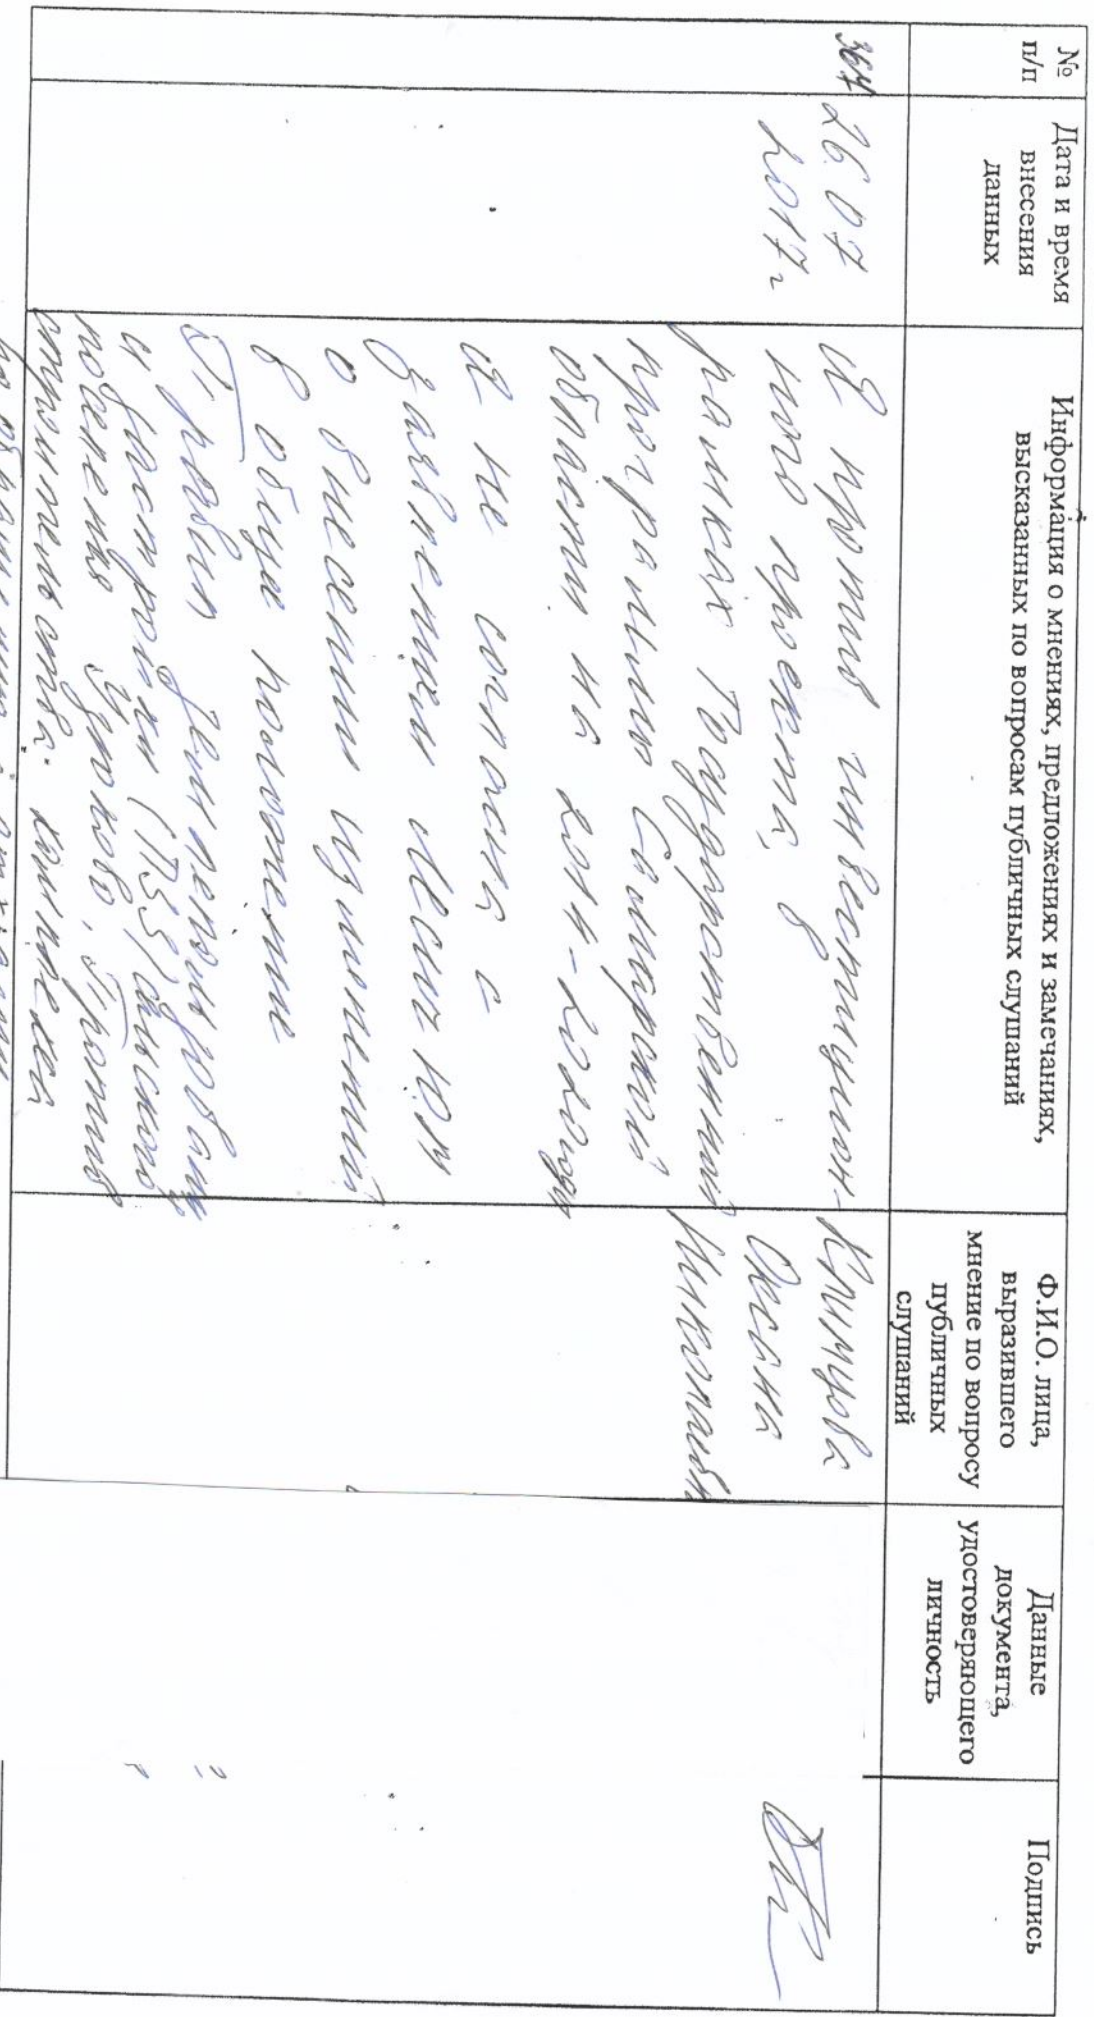 №
п/п
Дата и время
внесения
данных
Информация о мнениях, предложениях и замечаниях,
высказанных по вопросам публичных слушаний
Ф.И.О. лица,
выразившего
мнение по вопросу
публичных
слушаний
Данные
документа,
удостоверяющего
личность
Подпись
364
26.07
2017г
Я против инвестицион-
ного проекта, в
рамках Государственной
программы Самарской
области на 2014-2020годы
Я не согласна с
заявлениями Меси Ю.М
о внесении изменений
в общее положение
Правил землепользован
и застройки (ПЗЗ) сельског
поселения Удобно, Против
строительства комплекса
Климцова
Оксана
Николаевн